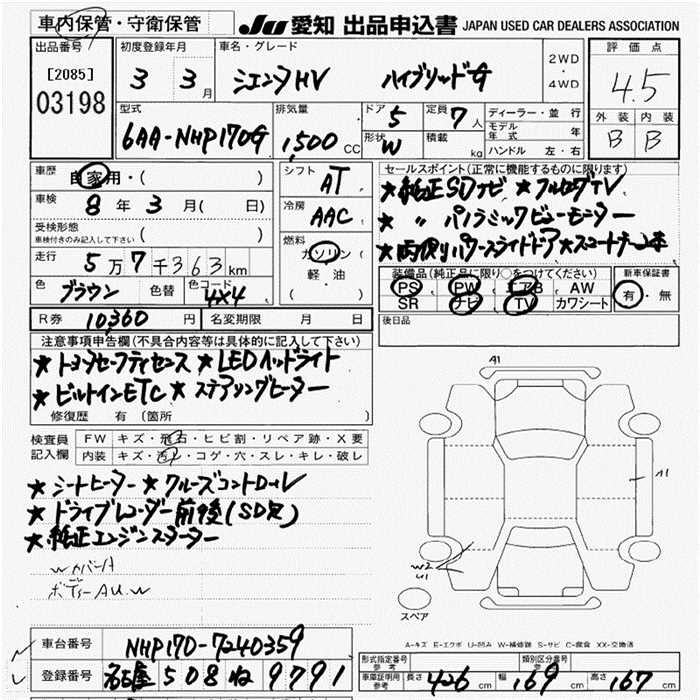 車内保管・守衛保管 JU 愛知 出品申込書 JAPAN USED CAR DEALERS ASSOCIATION
出品番号 [2085] 03198
初度登録年月 3 3月
車名・グレード シエンタHV ハイブリッドG 2WD・4WD
評価点 4.5
外装 B 内装 B
型式 6AA-NHP170G
排気量 1,500 CC
ドア 5 定員 7人
形状 W 積載 kg
ディーラー・並行
モデル年式 年
ハンドル 左・右
車歴 自家用・( )
車検 8年3月( 日)
受検形態 車検付きのみ記入して下さい ( )
走行 5万7千363km
色 ブラウン 色替 色コード 4X4
シフト AT
冷房 AAC
燃料 ガソリン 軽油 ( )
セールスポイント(正常に機能するものに限ります)
★純正SDナビ ★フルセグTV
★ 〃 パノラミックビューモニター
★両側パワースライドドア ★スマートキー2本
装備品(純正品に限り○をつけてください)
PS PW エアB AW
SR ナビ TV カワシート
新車保証書 有・無
R券 10,360円 名変期限 月 日
後日品
注意事項申告欄(不具合内容等は具体的に記入して下さい)
★トヨタセーフティセンス ★LEDヘッドライト
★ビルトインETC ★ステアリングヒーター
修復歴 有 (箇所 )
検査員記入欄
FW キズ・飛石・ヒビ割・リペア跡・X要
内装 キズ・汚れ・コゲ・穴・スレ・キレ・破レ
★シートヒーター ★クルーズコントロール
★ドライブレコーダー前後(SD欠)
★純正エンジンスターター
WカバーA
ボデーAU.W
A1
A1
W2
U1
スペア
A-キズ E-エクボ U-凹み W-補修跡 S-サビ C-腐食 XX-交換済
車台番号 NHP170-7240359
登録番号 名古屋 508 ね 9791
形式指定番号 参考 類別区分番号 参考
車庫証明用 参考 長さ 426cm 幅 169cm 高さ 167cm